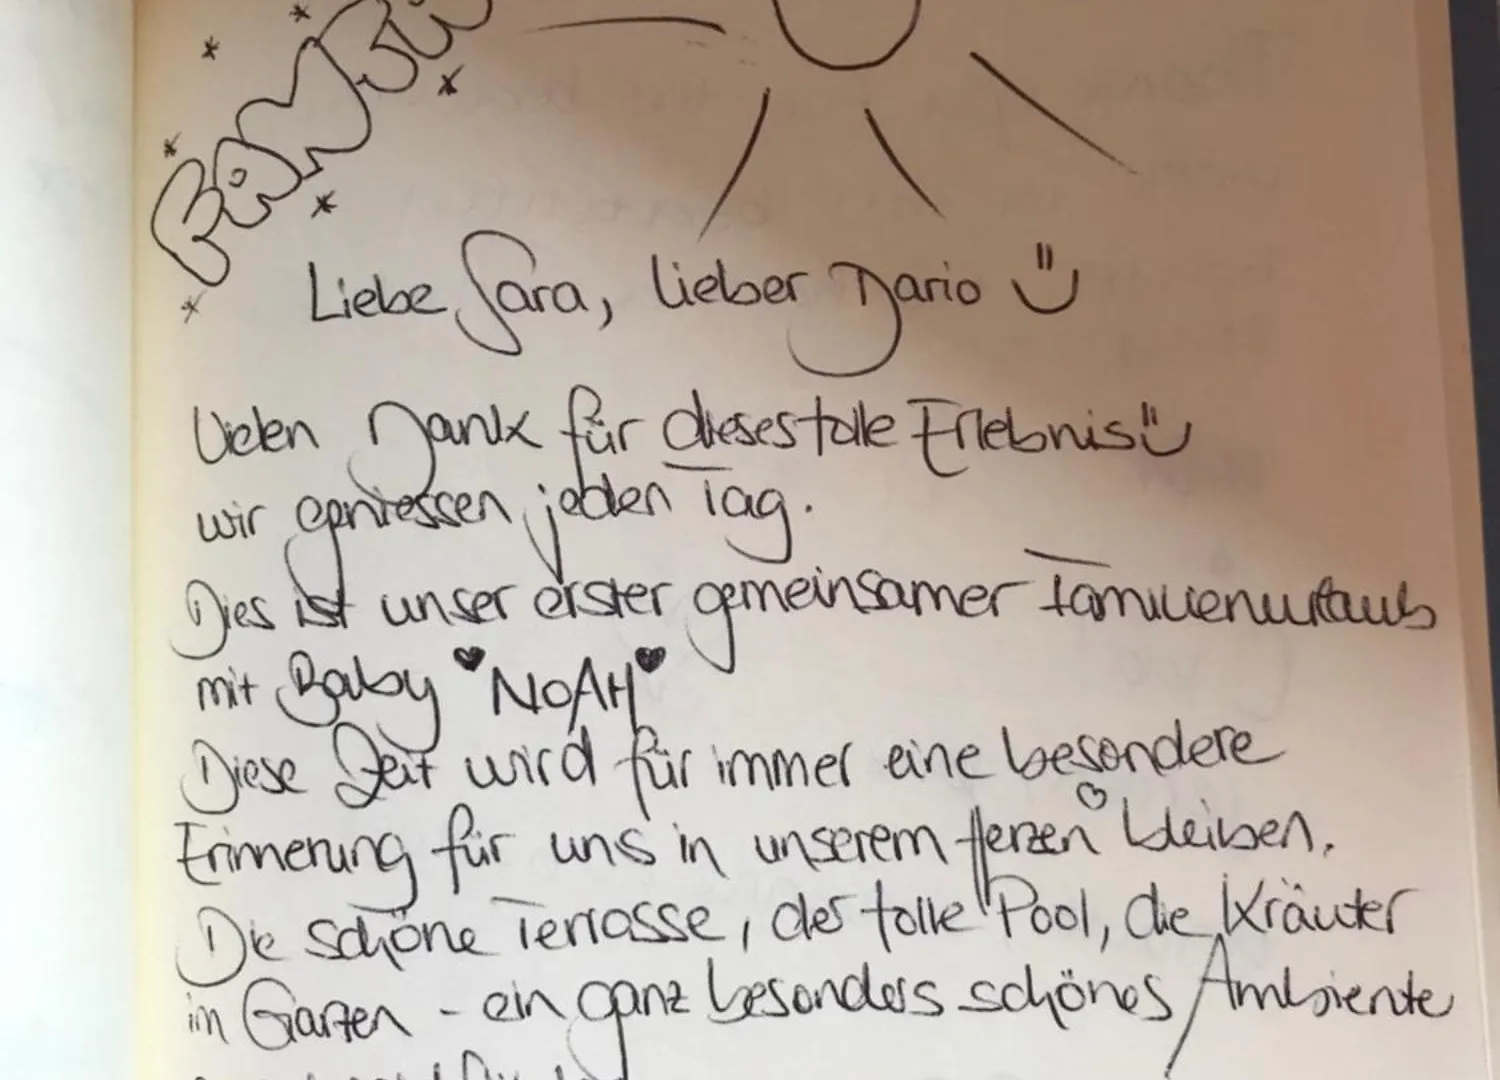 Liebe Sara, lieber Dario
Vielen Dank für dieses tolle Erlebnis
wir geniessen jeden Tag.
Dies ist unser erster gemeinsamer Familienurlaub
mit Baby "NOAH"
Diese Zeit wird für immer eine besondere
Erinnerung für uns in unserem Herzen bleiben.
Die schöne Terrasse, der tolle Pool, die Kräuter
im Garten - ein ganz besonders schönes Ambiente